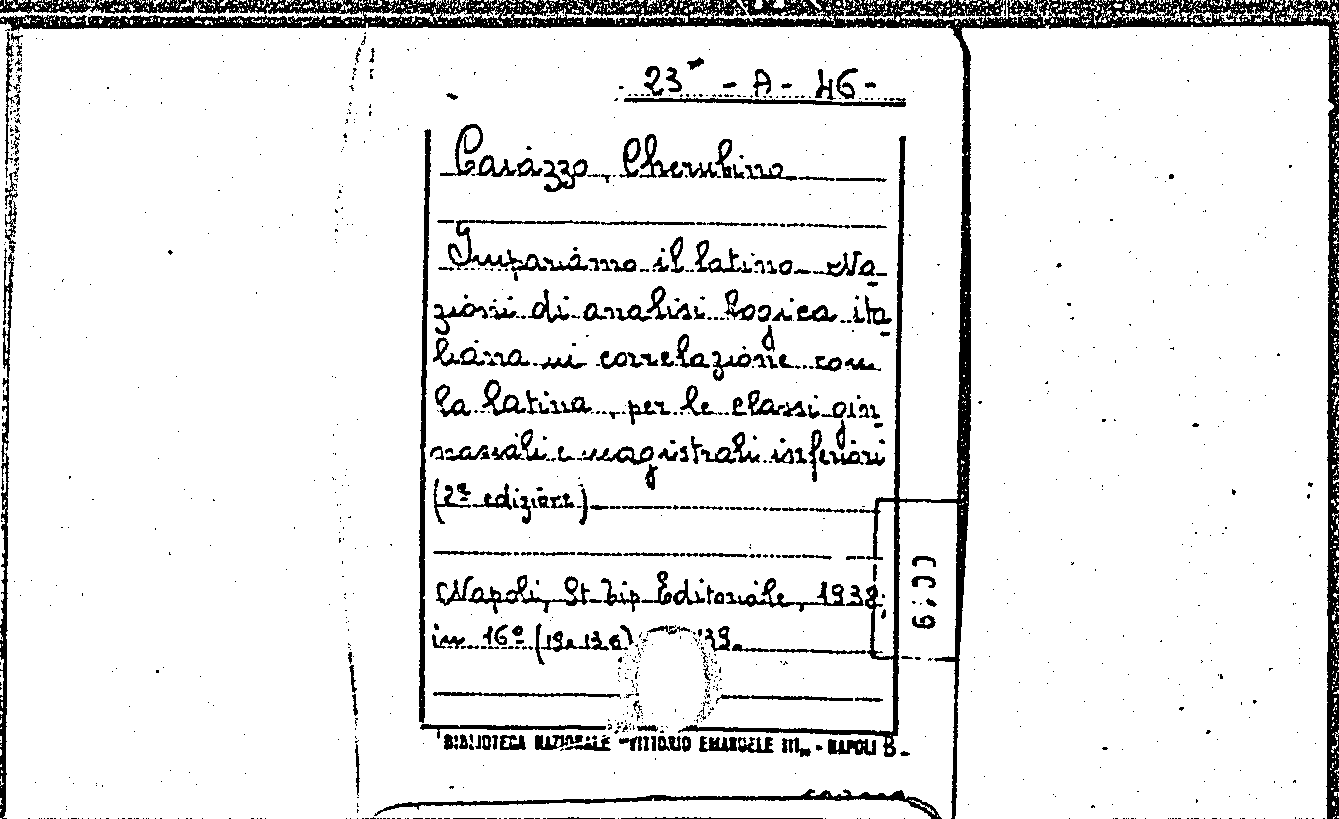 23* - A - 46 -
Caiazzo, Cherubino
Impariamo il latino. No
zioni di analisi logica ita
liana in correlazione con
la latina, per le classi gin
nasiali e magistrali inferiori
(2ª edizione)
Napoli, St. Tip. Editoriale, 1938;
in 16º (19x13,6) 139.
BIBLIOTECA NAZIONALE "VITTORIO EMANUELE III„ - NAPOLI B-